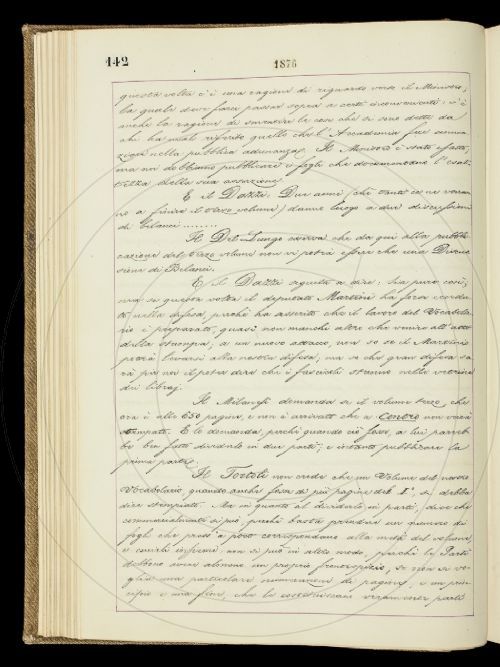 142
1876
questa volta c'è una ragione di riguardo verso il Ministro;
la quale deve farci passar sopra a certi inconvenienti: c'è
anche la ragione di smentire le cose che si sono dette da
chi ha male riferito quello che l'Accademia fece
nella pubblica adunanza. Il Ministro è stato esatto,
ma noi dobbiamo pubblicare i fogli che documentano l'esat-
tezza della sua asserzione.
E il Dazzi: Due anni (chè tanto ce ne vorran-
no a finire il terzo volume) danno luogo a due discussioni
di Bilanci ........
Il Del Lungo osserva che da qui alla pubbli-
cazione del terzo volume non vi potrà essere che una Discus-
sione di Bilanci.
E il Dazzi seguita a dire: Sia pure così;
ma se questa volta il deputato Martini ha
nella difesa, perchè ha asserito che il lavoro del Vocabola-
rio è preparato, quasi non manchi altro che venire all'atto
della stampa; a un nuovo attacco, non so se il Martini
potrà levarsi alla nostra difesa; ma se che gran difesa sa-
rà poi non si potrà dire che i fascicoli stanno nelle vetrine
dei libraj.
Il Milanesi domanda se il volume terzo, che
ora è alle 650 pagine, e non è arrivato che a Centro non vada
stampato. E lo domanda, perchè quando ciò fosse, a lui parreb-
be ben fatto dividerlo in due parti, e intanto pubblicare la
prima parte.
Il Tortoli non crede che un Volume del nostro
Vocabolario, quando anche fosse di più pagine del I°, si debba
dire stampato. Ma in quanto al dividerlo in parti, dice che
commercialmente si può, perchè basta prendere un numero di
fogli che presso a poco corrispondano alla metà del volume,
e cucirli insieme: non si può in altro modo, perchè le Parti
debbono avere almeno un proprio frontespizio, se non si vo-
glia una particolare numerazione di pagine, e un prin-
cipio e una fine, che le costituiscano veramente parti